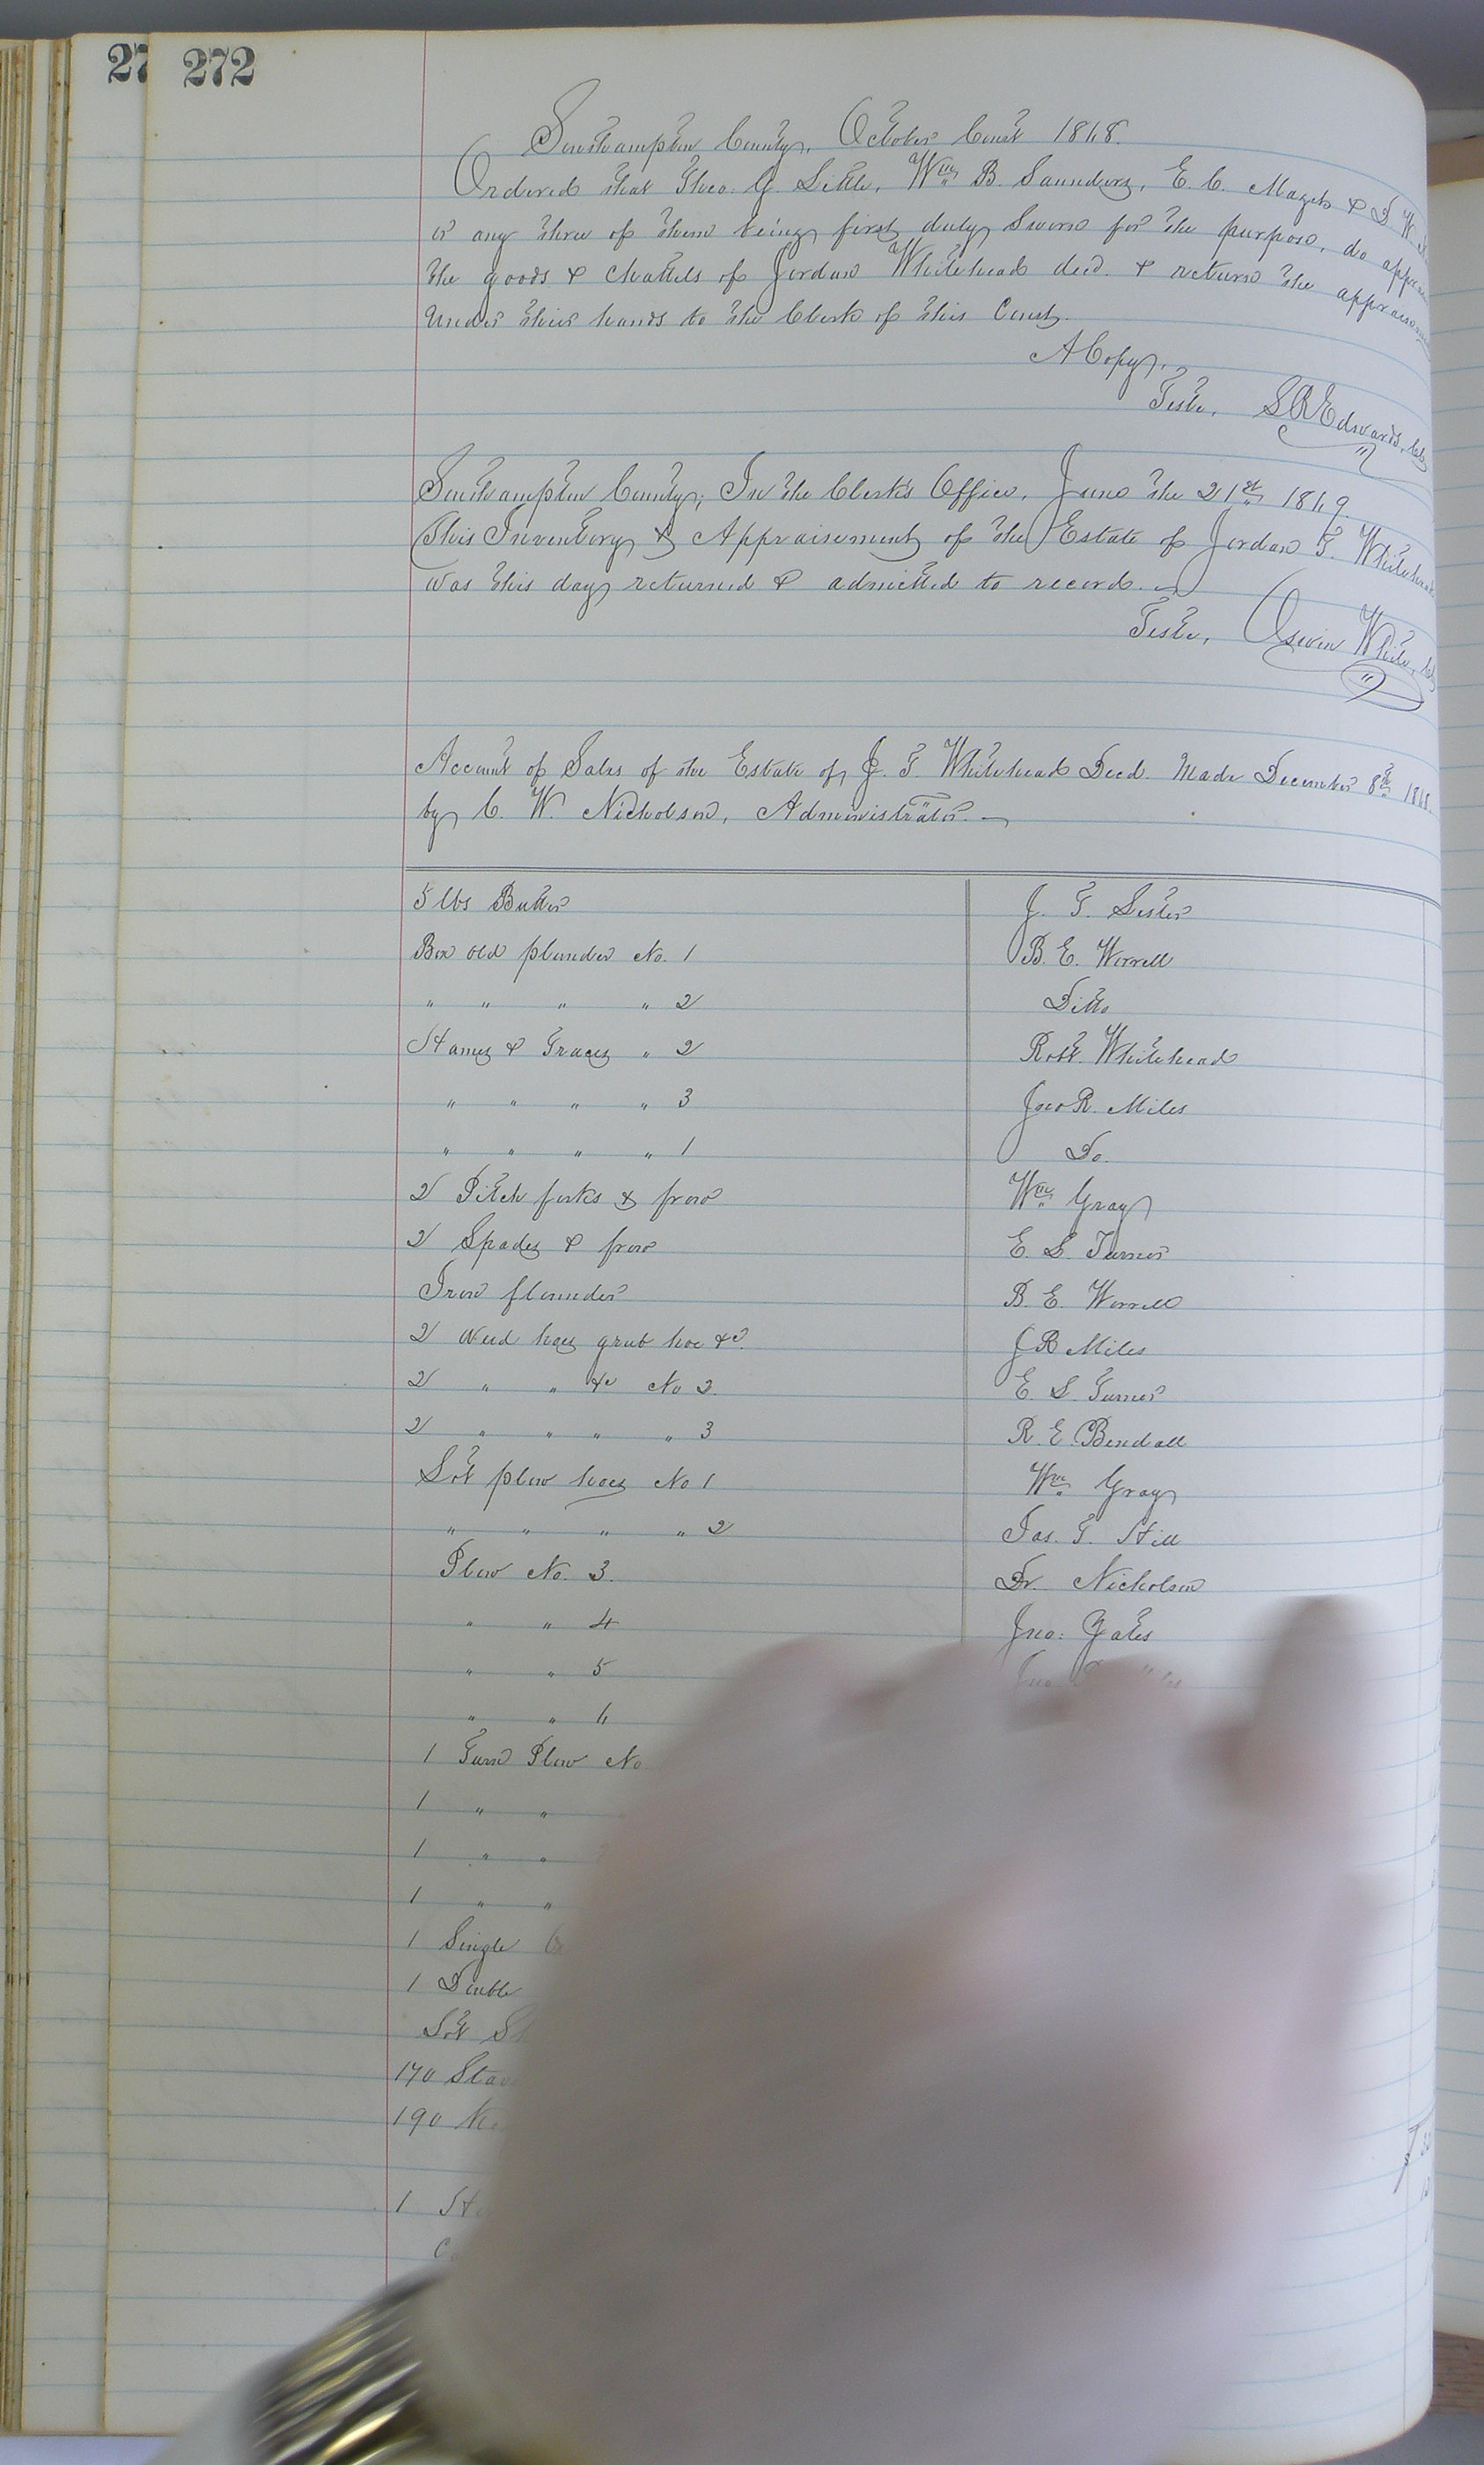 27 272
Southampton County, October Court 1868.
Ordered that Theo. G. Little, Wm B. Saunders, E. C. Magets & D W
or any three of them being first duly Sworn for the purpose, do
the goods & chattels of Jordan Whitehead decd. & return the
under their hands to the Clerk of this Court.
A Copy,
Teste, S R Edwards, Clk
Southampton County; In the Clerk's Office, June the 21st 1869.
This Inventory & Appraisement of the Estate of Jordan T. Whitehead
was this day returned & admitted to record.
Teste, White, Clk
Account of Sales of the Estate of J. T. Whitehead Decd. Made December 8th 1868.
by C. W. Nicholson, Administrator.
5 lbs Butter J. T.
Box old plunder No. 1 B. E. Worrell
" " " " 2 Ditto
Hames & Traces " 2 Robt. Whitehead
" " " " 3 Jno R. Miles
" " " " 1 Do.
2 Pitch forks & frow Wm Gray
2 Spades & frow E. S. Turner
Iron plunder B. E. Worrell
2 Weed hoes grub hoe &c. J R Miles
2 " " &c No 2. E. S. Turner
2 " " " " 3 R. E. Bendall
Lot plow hoes No 1 Wm Gray
" " " " 2 Jas. T. Hill
Plow No. 3. Dr. Nicholson
" " 4 Jno: Yates
" " 5 Jno
" " 6
1 Turn Plow No
1 " "
1 " "
1 " "
1 Single
1 Double
Lot
170
190
1